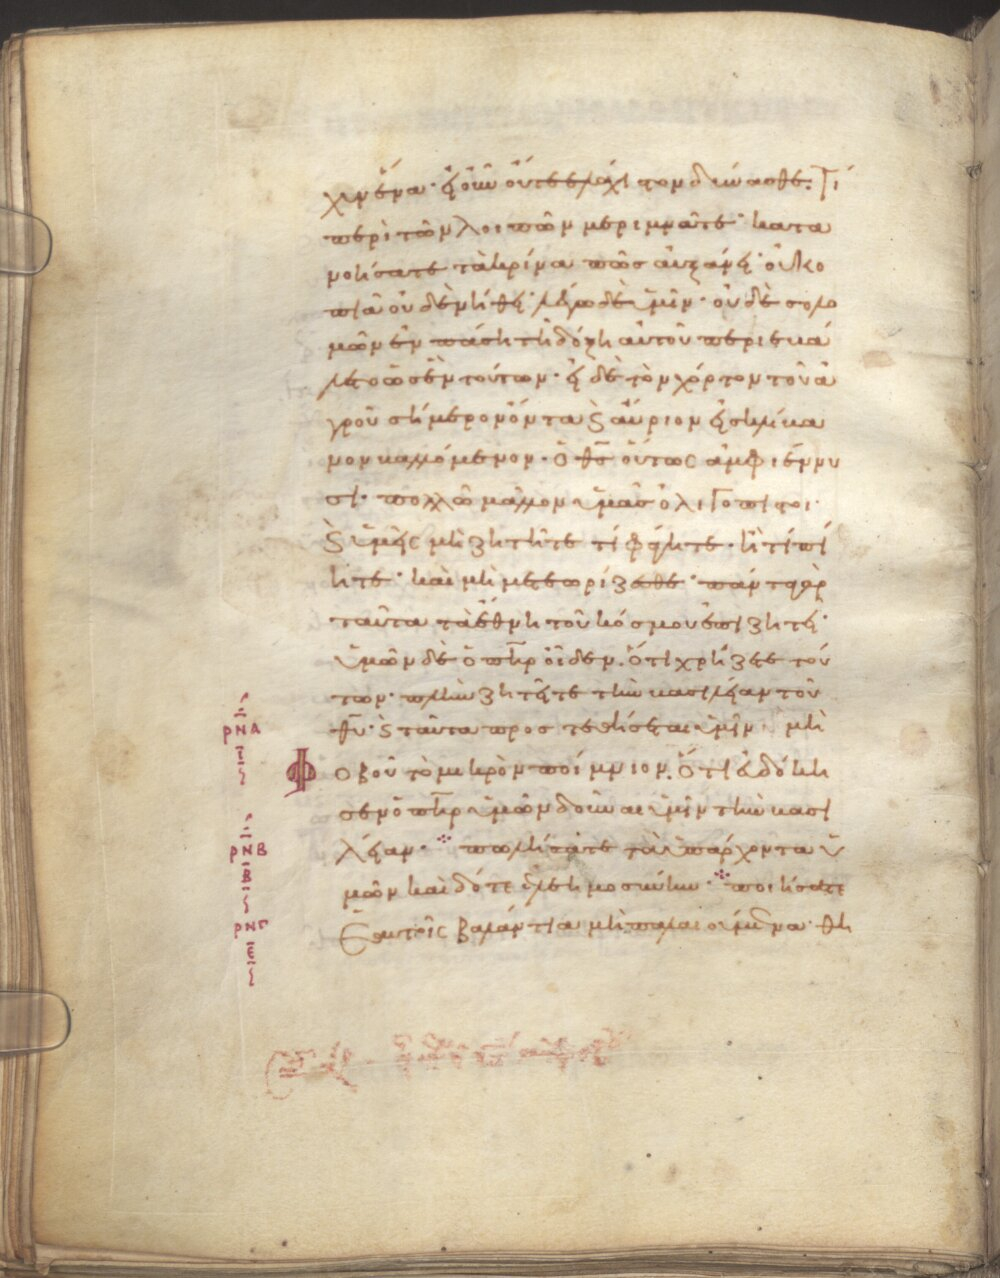 χυν ἕνα· εἰ οὖν οὔτε ἐλάχιστον δύνασθε· τί
περὶ τῶν λοιπῶν μεριμνᾶτε· κατα
νοήσατε τὰ κρίνα πῶς αὐξάνει· οὐ κο
πιᾶ οὐδὲ νήθει· λέγω δὲ ὑμῖν· οὐδὲ σολο
μῶν ἐν πάση τῆ δόξη αὐτοῦ περιεβά
λετο ὡς ἓν τούτων· εἰ δὲ τὸν χόρτον τοῦ ἀ
γροῦ σήμερον ὄντα ϗ αὔριον εἰς κλίβα
νον βαλλόμενον· ὁ θς οὕτως ἀμφιέννυ
σι· πόλλω μᾶλλον ὑμᾶς ὀλιγόπιστοι·
ϗ ὑμεῖς μὴ ζητῆτε τί φάγητε· ἢ τί πί
ητε· καὶ μὴ μετεωρίζεσθε· πάντα γὰρ
ταῦτα τὰ ἔθνη τοῦ κόσμου ἐπιζητεῖ·
ὑμῶν δὲ ὁ πηρ οἶδεν· ὅτι χρήζετε τού
των· πλὴν ζητεῖτε τὴν βασιλείαν τοῦ
θυ· ϗ ταῦτα προστεθήσεται ὑμῖν· μὴ
Φοβοῦ τὸ μικρὸν ποίμνιον· ὅτι εὐδόκη
σεν ὁ πηρ ὑμῶν δοῦναι ὑμῖν τὴν βασι
λείαν· ⁘ πωλήσατε τὰ ὑπάρχοντα ὑ
μῶν καὶ δότε ἐλεημοσύνην· ⁘ ποιήσατε
ἑαυτοῖς βαλάντια μὴ παλαιούμενα· θη
ρΝΑ
ρΝΒ
Β
ρΝΓ